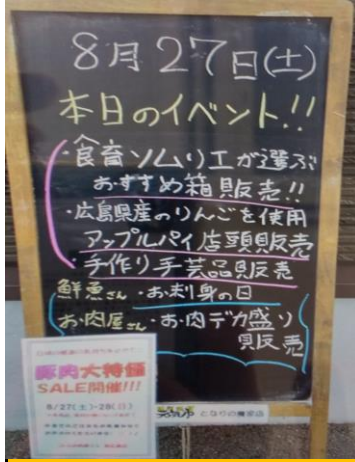 8月27日(土)
本日のイベント!!
・食育ソムリエが選ぶ
おすすめ箱販売!!
・広島県産のりんごを使用
アップルパイ店頭販売
・手作り手芸品販売
鮮魚さん・お刺身の日
お肉屋さん・お肉デカ盛り
販売
豚肉大特価
SALE開催!!!
8/27(土)-28(日)
となりの農家店